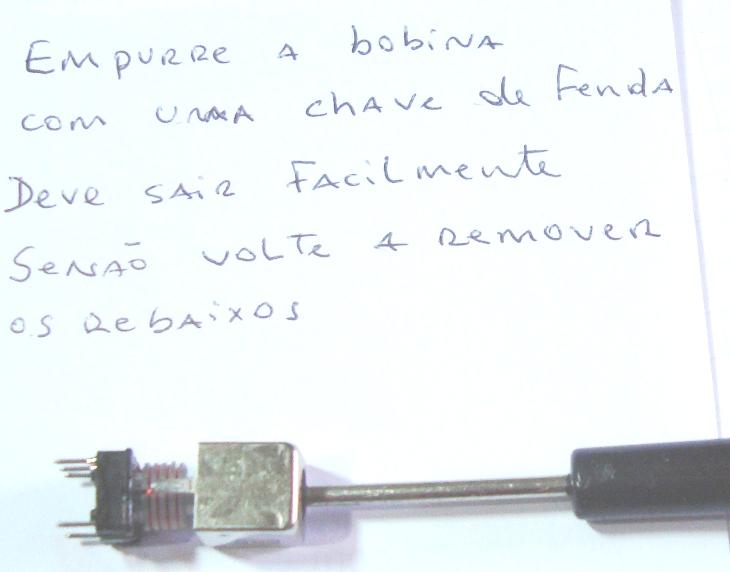 Empurre a bobina
com uma chave de fenda
Deve sair facilmente
Senão volte a remover
os rebaixos